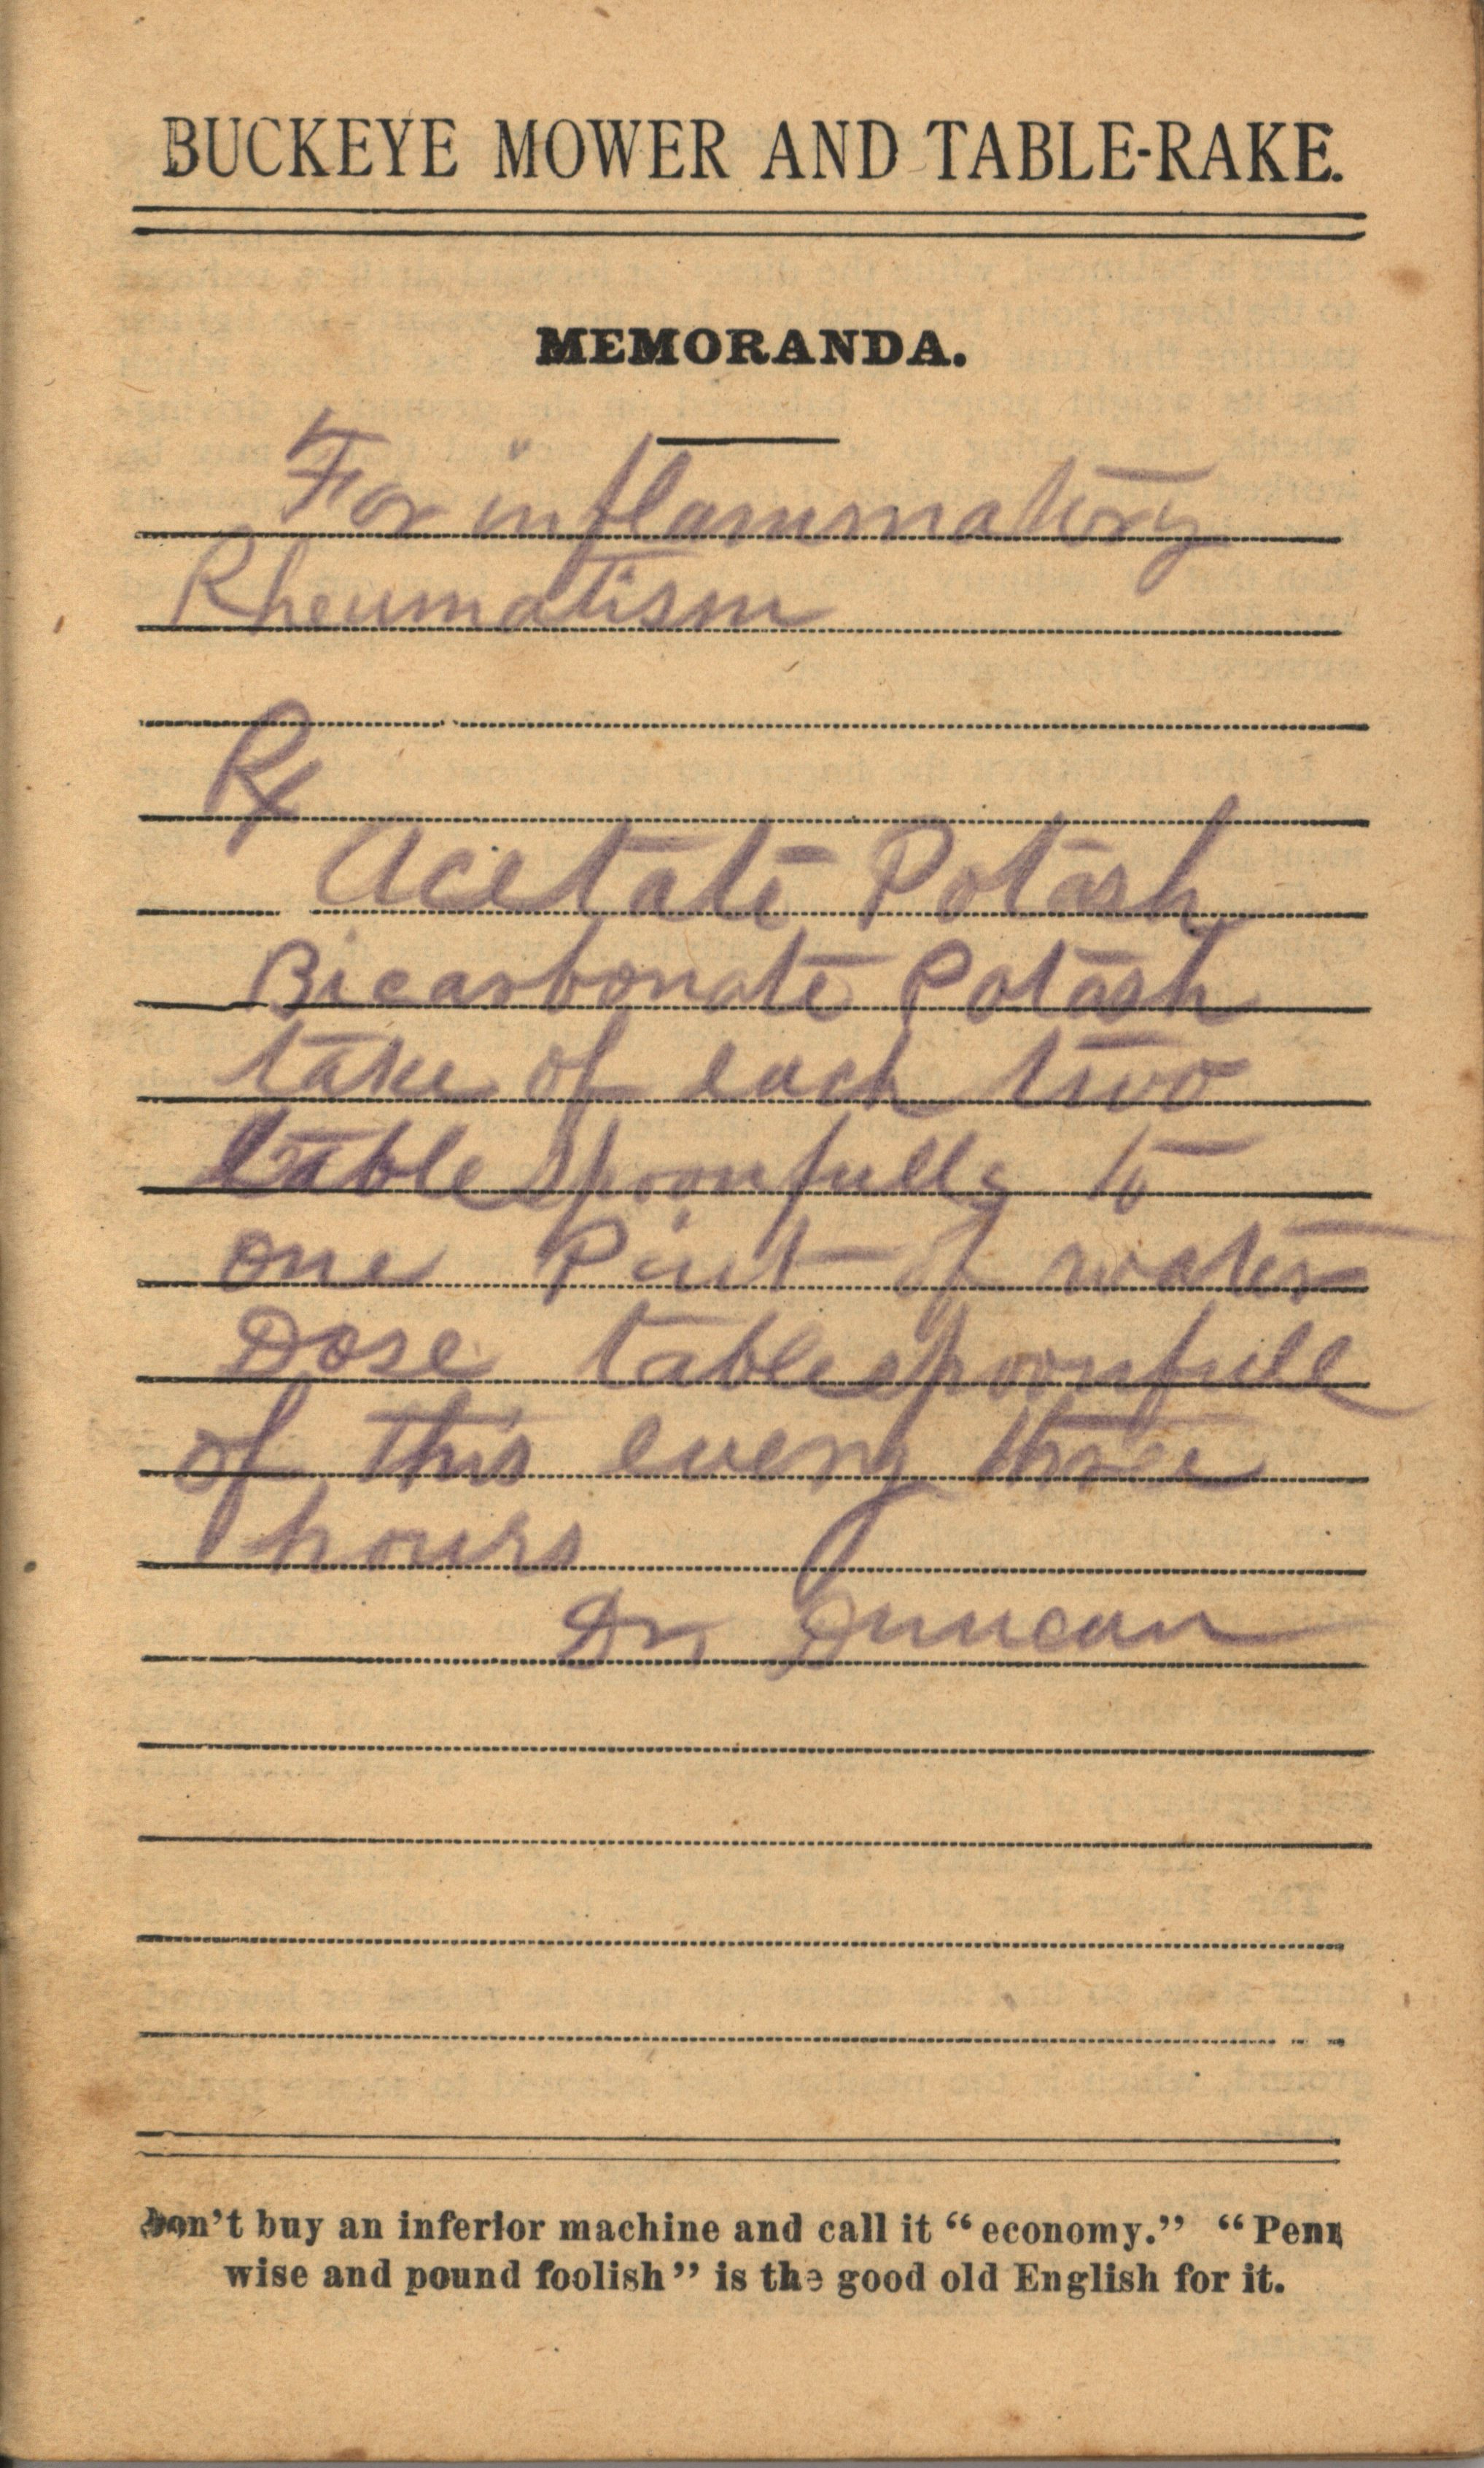 BUCKEYE MOWER AND TABLE-RAKE.
MEMORANDA.
For inflammatory
Rheumatism
℞
Acetate Potash
Bicarbonate Potash
take of each two
tablespoonfulls to
one Pint of water
Dose tablespoonfull
of this every three
hours
Dr Duncan
Don't buy an inferior machine and call it “economy.” “Penn
wise and pound foolish” is the good old English for it.